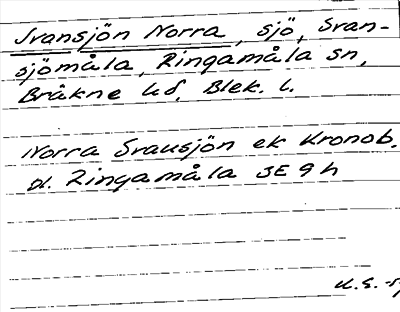 Svansjön Norra, sjö, Svan-
sjömåla, Ringamåla sn,
Bråkne hd, Blek. l.
Norra Svansjön ek Kronob.
d. Ringamåla 3E 9h